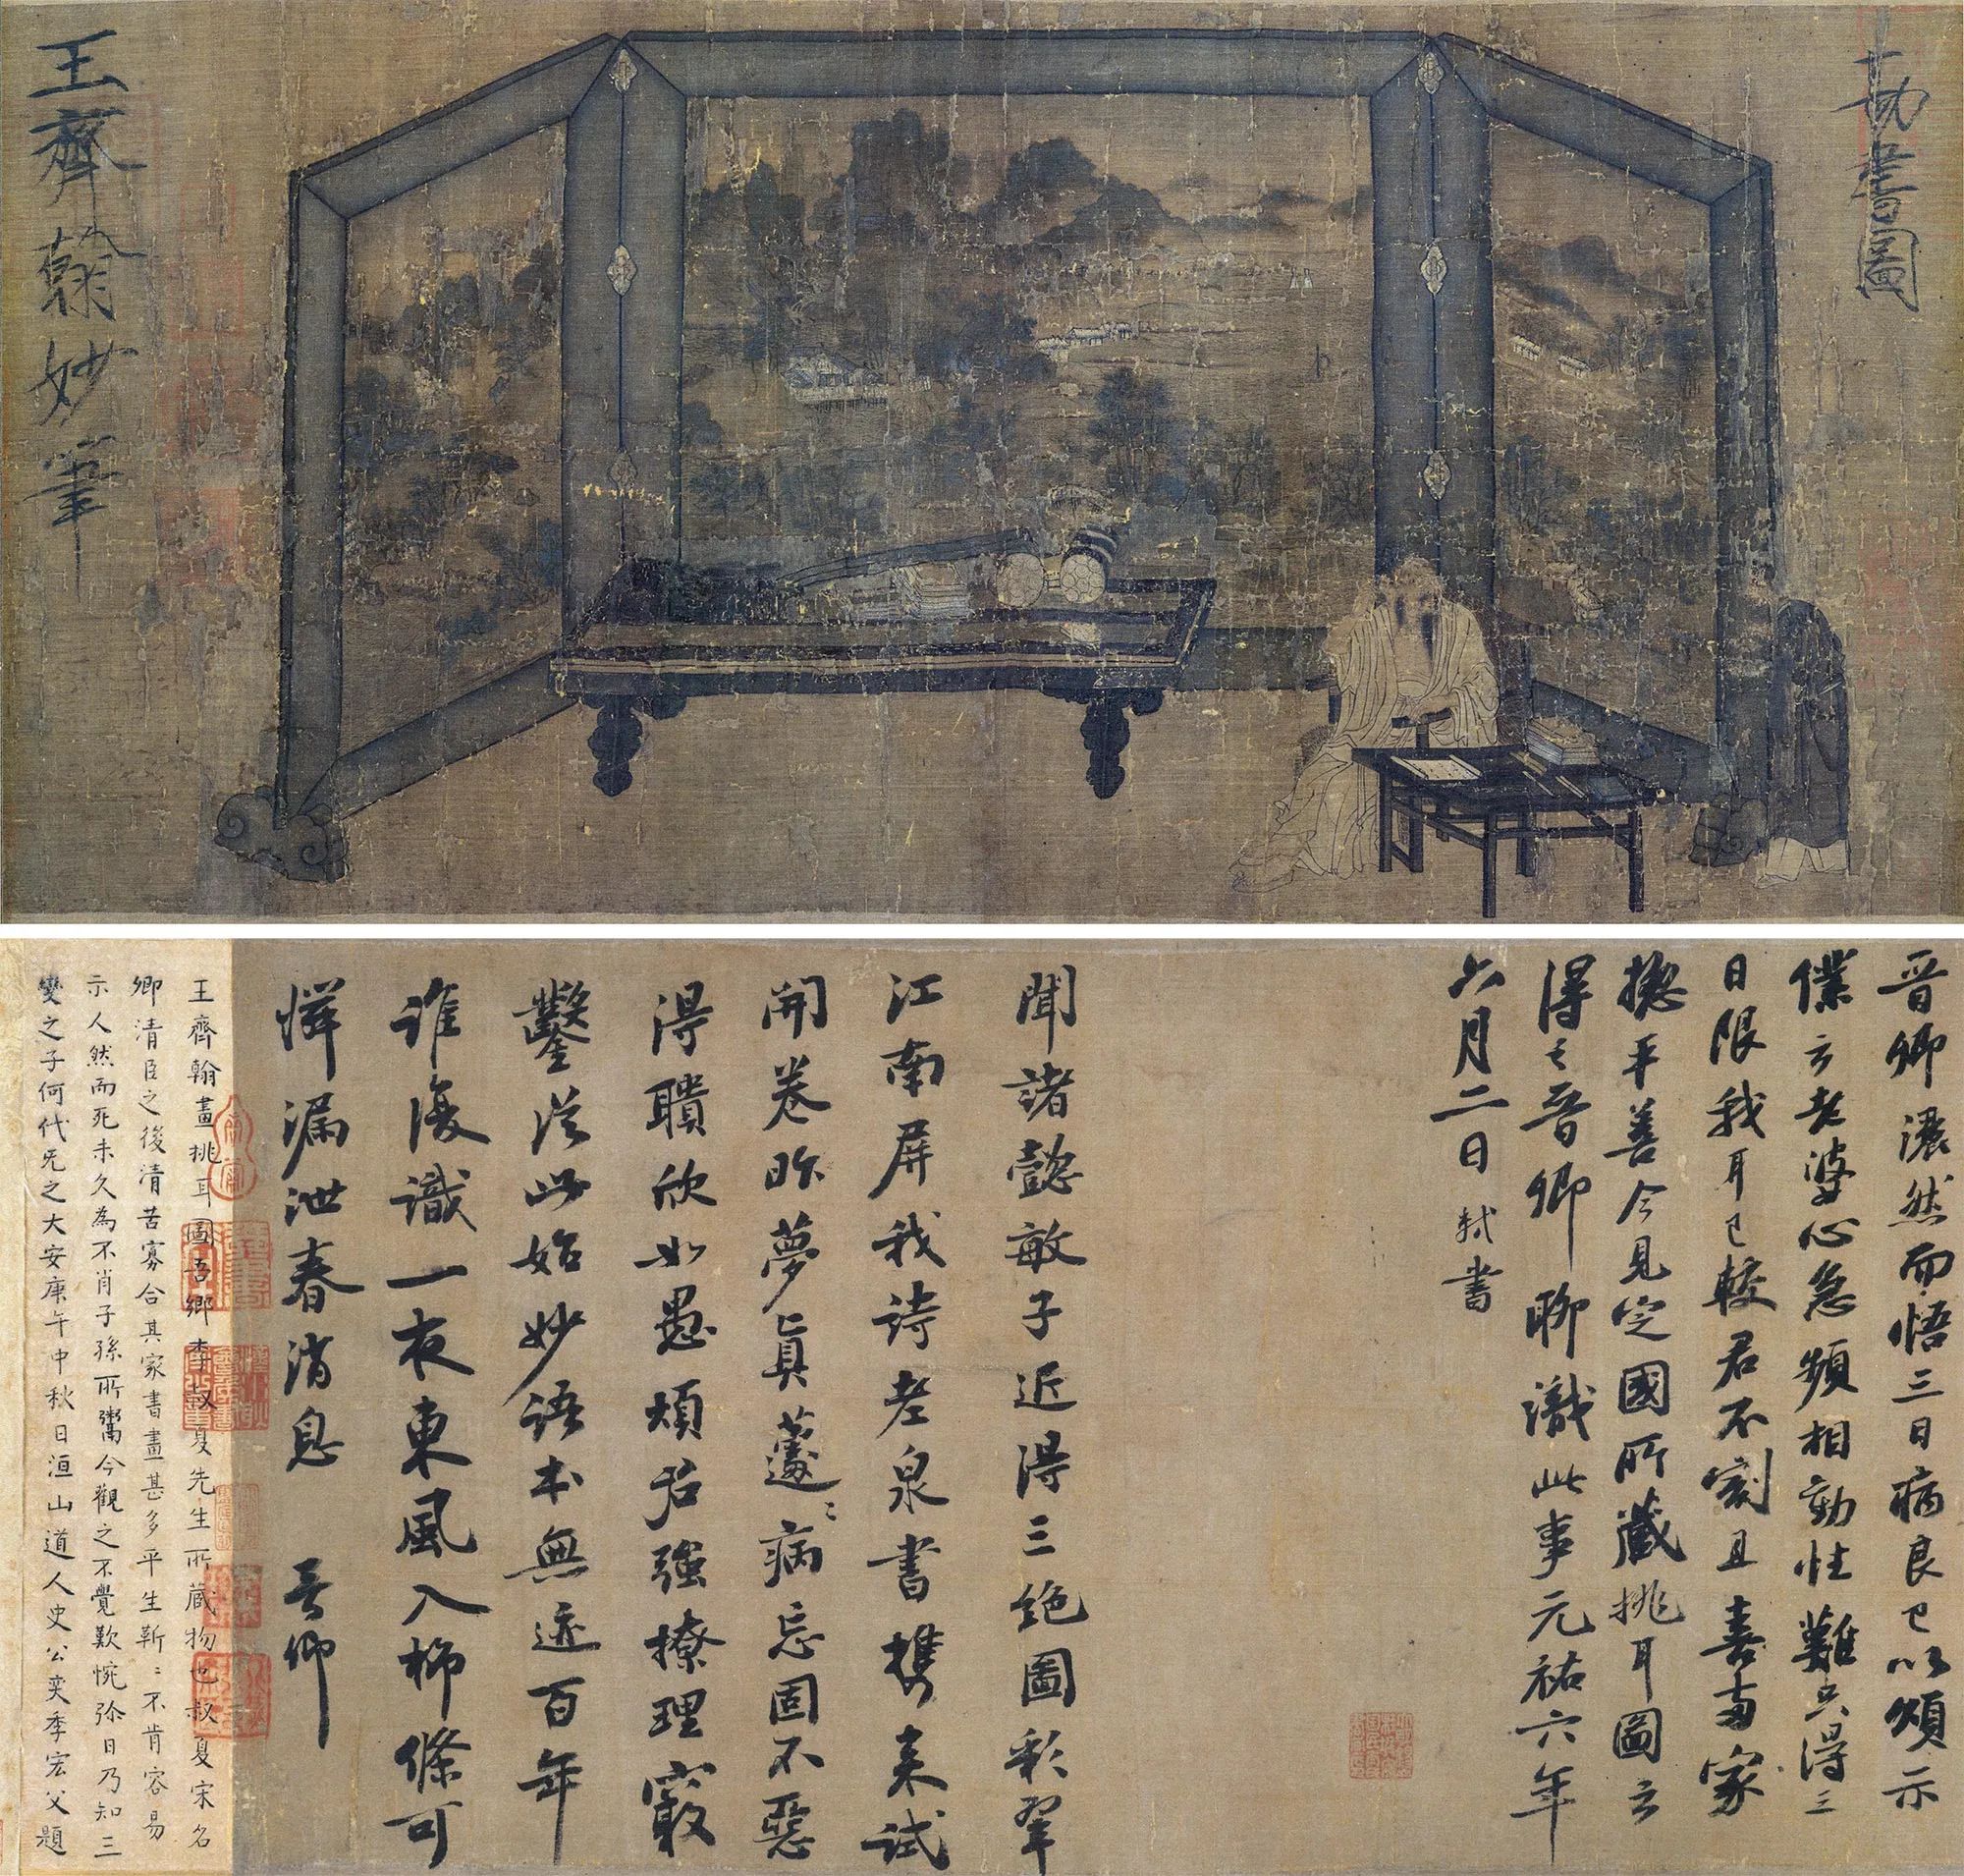 勘書圖
王齊翰妙筆
晉卿濃然而悟三日病良已以頌示
僕云老婆心急頻相勸性難只得三
日限我耳已較君不割且喜兩家
揔平善今見定國所藏挑耳圖云
得之晉卿聊識此事元祐六年
六月二日軾書
聞諸懿敏子近得三絶圖彩翠
江南屏我詩老泉書攜來試
開卷昨夢真蘧〻病忘固不惡
得聵欣如愚煩君強撩理竅
鑿從此始妙語本無迹百年
誰復識一夜東風入柳條可
憐漏泄春消息 晉卿
王齊翰畫挑耳圖吾鄉李叔夏先生所蔵物也叔夏宋名
卿清臣之後清苦寡合其家書畫甚多平生靳〻不肯容易
示人然而死未久為不肖子孫所鬻今觀之不覺歎惋弥日乃知三
變之子何代无之大安庚午中秋日洹山道人史公奕季宏父題